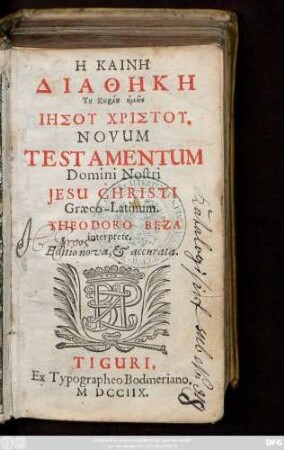 Η ΚΑΙΝΗ
ΔΙΑΘΗΚΗ
Τοῦ Κυρίου ἡμῶν
ΙΗΣΟΥ ΧΡΙΣΤΟΥ.
NOVUM
TESTAMENTUM
Domini Nostri
JESU CHRISTI
Græco-Latinum.
THEODORO BEZA
interprete.
Editio nova, & accurata.
TIGURI,
Ex Typographeo Bodmeriano,
M DCCIIX.